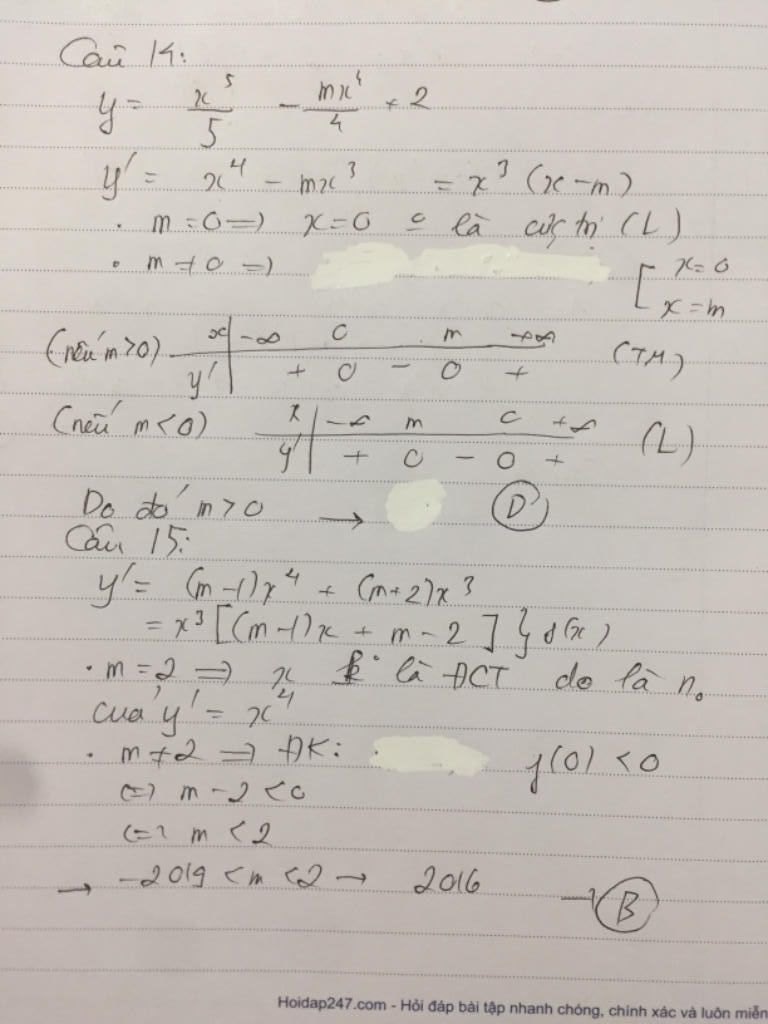 Câu 14:
y = x^5/5 - mx^4/4 + 2
y' = x^4 - mx^3 = x^3 (x - m)
. m = 0 => x = 0 là cực trị (L)
. m ≠ 0 => [ x = 0
x = m
(nếu m > 0) x | -∞ 0 m +∞ (TM)
y' | + 0 - 0 +
(nếu m < 0) x | -∞ m 0 +∞ (L)
y' | + 0 - 0 +
Do đó m > 0 → D
Câu 15:
y' = (m-1)x^4 + (m+2)x^3
= x^3 [(m-1)x + m - 2] } g(x)
. m = 2 => x k° là ĐCT do là n₀
của y' = x^4
. m ≠ 2 => ĐK: g(0) < 0
<=> m - 2 < 0
<=> m < 2
→ -2019 < m < 2 → 2016 → B
Hoidap247.com - Hỏi đáp bài tập nhanh chóng, chính xác và luôn miễn